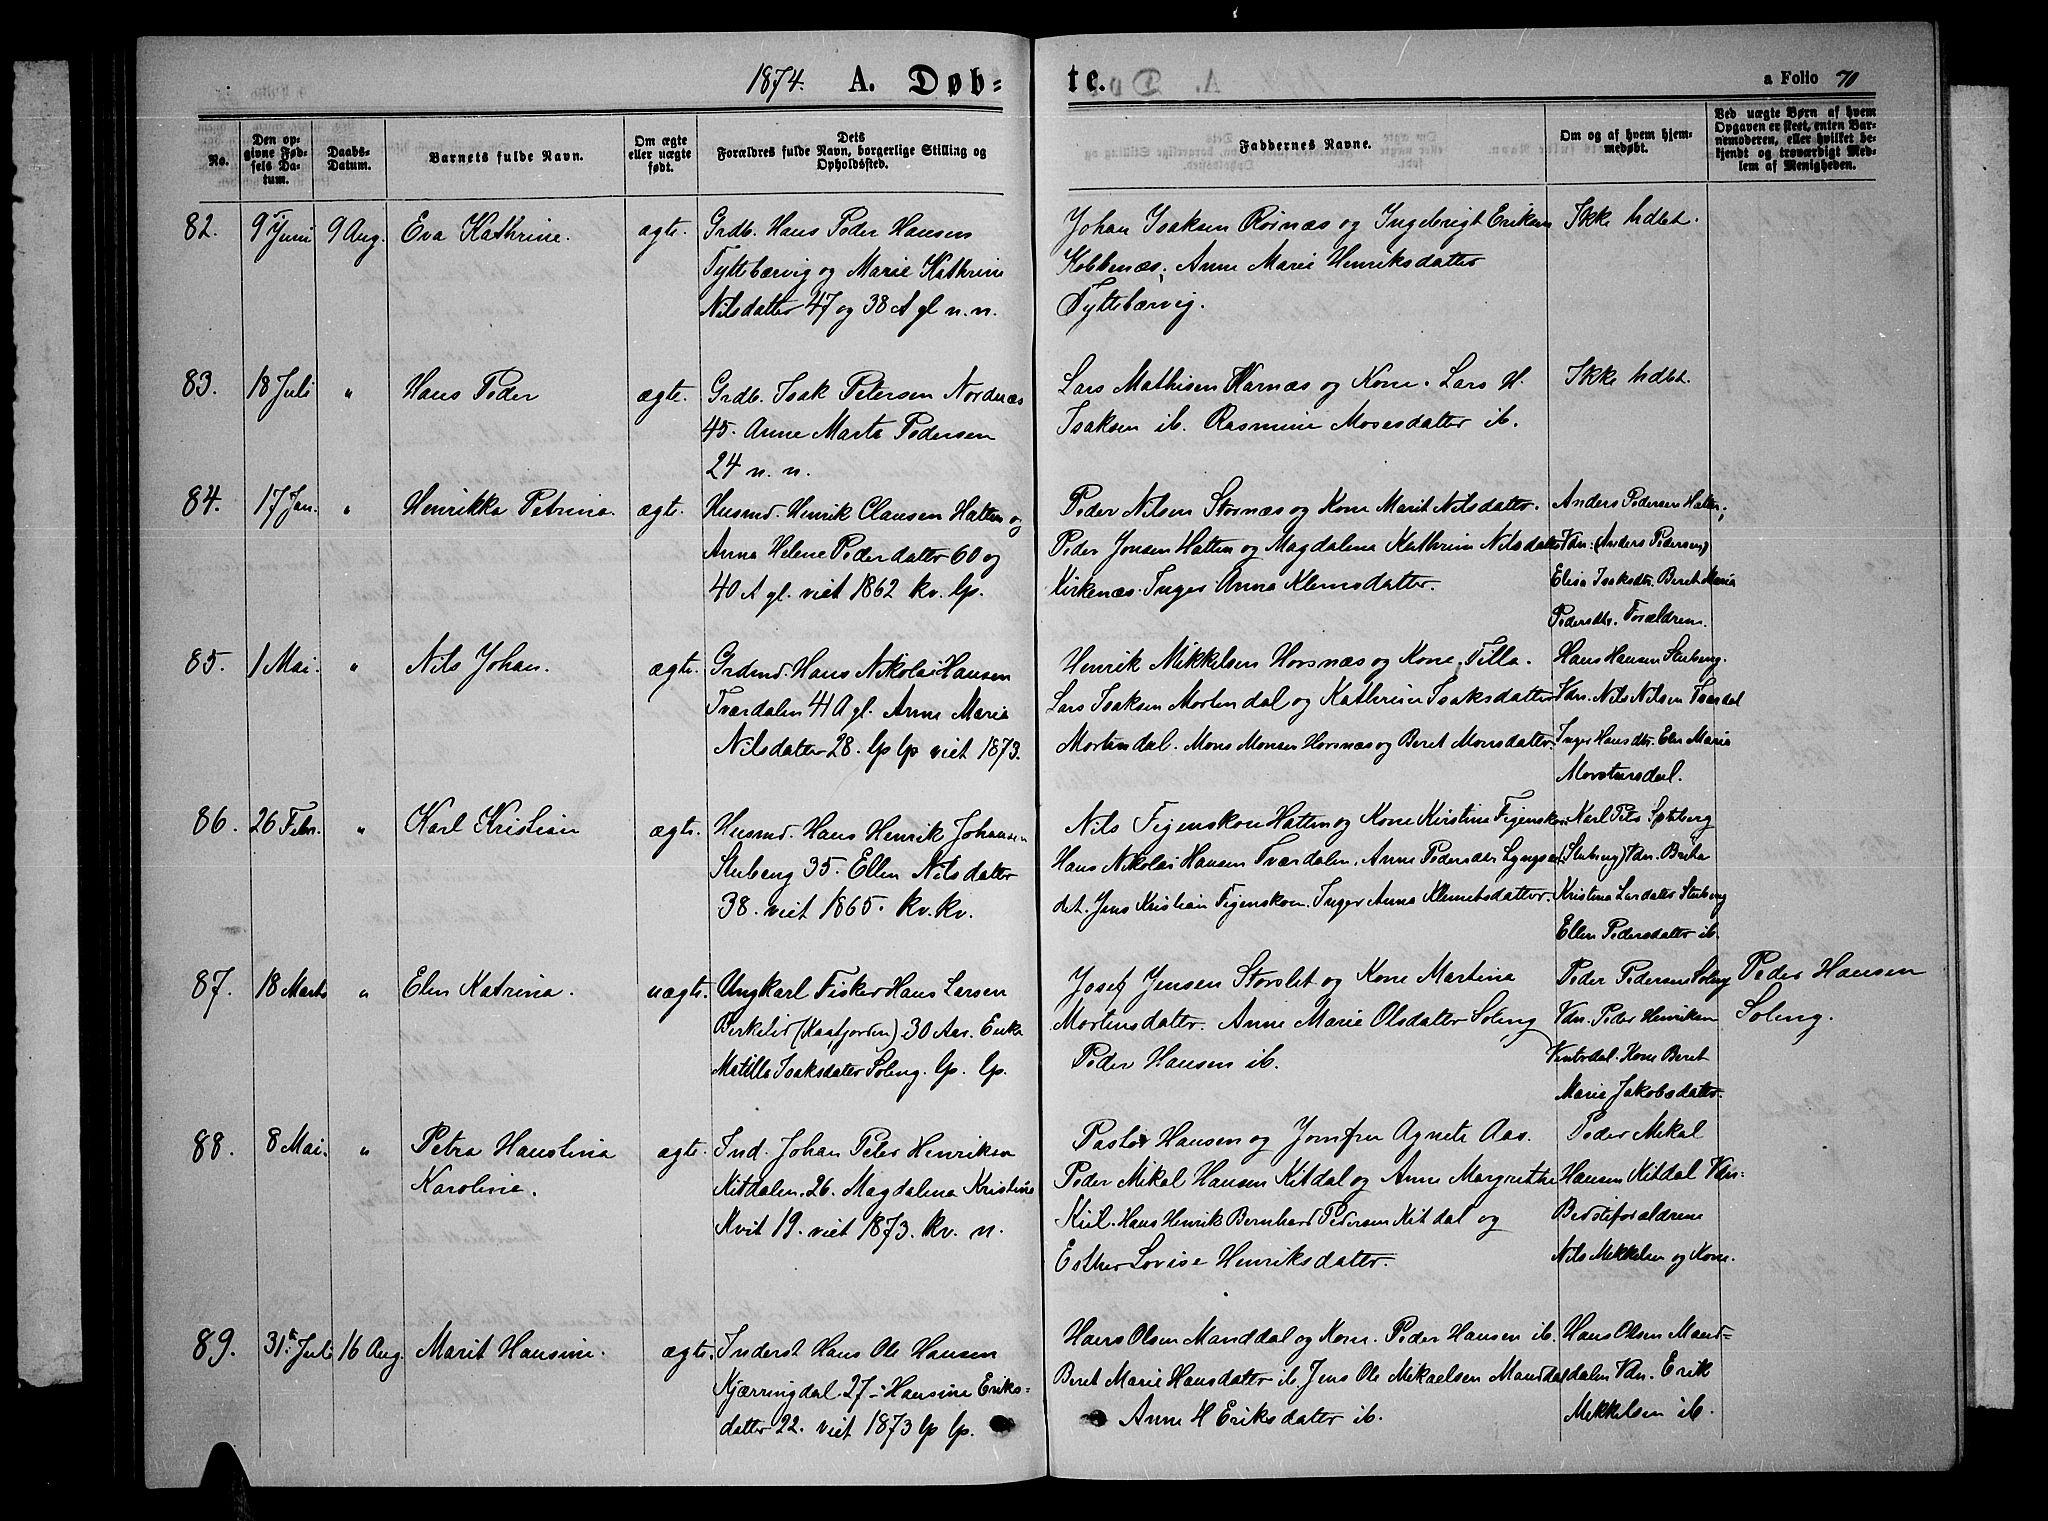 1874. A. Døb=
te. a Folio 70
No.
Den op-
givne Fød-
sels Da-
tum.
Daabs-
Datum.
Barnets fulde Navn.
Om ægte
eller uægte
født.
Dets
Forældres fulde Navn, borgerlige Stilling og
Opholdssted.
Faddernes Navne.
Om og af hvem hjem-
medøbt.
Ved uægte Børn af hvem
Opgaven er skeet, enten Bar-
nemoderen, eller hvilket be-
kjendt og troværdigt Med-
lem af Menigheden.
82. 9 Juni 9 Aug. Eva Kathrine. ægte.
Grdb. Hans Peder Hansen
Tyttebærvig og Marie Kathrine
Nilsdatter 47 og 38 A gl n. n.
Johan Isaksen Rørnæs og Ingebrigt Eriksen
Kobbenæs, Anne Marie Henriksdatter
Tyttebærvig.
Ikke hdbt.
83. 18 Juli " Hans Peder ægte.
Grdb. Isak Petersen Nordnæs
45. Anne Marta Pedersen
24 n. n.
Lars Mathisen Karnæs og Kone. Lars H.
Isaksen ib. Rasmine Mosesdatter ib.
Ikke hdbt.
84. 17 Jan. " Henrikka Petrina. ægte.
Husmd. Henrik Clausen Hatten og
Anna Helene Pederdatter 60 og
40 A gl. viet 1862 kv. lp.
Peder Nilsen Stornæs og Kone Marit Nilsdatter.
Peder Jonsen Hatten og Magdalena Kathrine Nilsdatter
Kirkenæs. Inger Anna Klemsdatter.
Anders Pedersen Hatten;
Vdn. (Anders Pedersen)
Elisa Isaksdtr. Beret Maria
Pedersdtr. Forældrene.
85. 1 Mai. " Nils Johan. ægte.
Grdmd. Hans Nikolai Hansen
Tværdalen 41 A gl. Anne Maria
Nilsdatter 28. lp lp viet 1873.
Henrik Mikkelsen Horsnæs og Kone Tilla.
Lars Isaksen Mortendal og Kathrine Isaksdatter
Mortendal. Mons Monsen Horsnæs og Beret Monsdatter.
Hans Hansen Steberg.
Vdn. Nils Nilsen Tværdal
Inger Hansdtr. Elen Maria
86. 26 Febr. " Karl Kristian ægte.
Husmd. Hans Henrik Johansen
Steberg 35. Ellen Nilsdatter
38. viet 1865. kv. kv.
Nils Figenskou Hatten og Kone Kirstine Figenskou.
Hans Nikolai Hansen Tværdalen. Anne Pedersdtr Lyngsei-
det. Jens Kristian Figenskou. Inger Anna Klemetsdatter.
Karl Pets
(Steberg) Vdn. Berta
Kristina Larsdatter Steberg
Ellen Pedersdatter ib.
87. 18 Marts " Elen Katrina. uægte.
Ungkarl Fisker Hans Larsen
Birkelid (Kaafjorden) 30 Aar. Enke
Matilla Isaksdatter Soleng. lp. lp.
Josef Jensen Storslet og Kone Martina
Mortensdatter. Anne Marie Olsdatter Soleng
Peder Hansen ib.
Peder Pedersen Soleng
Vdn. Peder Henriksen
Vinterdal. Kone Beret
Marie Jakobsdatter.
Peder Hansen
Soleng.
88. 8 Mai. " Petra Hanslina
Karoline. ægte.
Ind. Johan Peter Henriksen
Kitdalen. 26. Magdalena Kristine
Kvit 19. viet 1873. kv. n.
Pastor Hansen og Jomfru Agnete Aas.
Peder Mikal Hansen Kitdal og Anne Margrethe
Kiil. Hans Henrik Bernhard Pedersen Kitdal og
Esther Lovise Henriksdatter.
Peder Mikal
Hansen Kitdal Vdn.
Bedsteforældrene
Nils Mikkelsen og Kone.
89. 31te Juli 16 Aug. Marit Hansine. ægte.
Inderst Hans Ole Hansen
Kjærringdal 27 – Hansine Eriks-
datter 22. viet 1873 lp lp.
Hans Olsen Manddal og Kone. Peder Hansen ib.
Beret Marie Hansdatter ib. Jens Ole Mikaelsen Manddal
Anne H Eriksdatter ib.
Hans Olsen Mand-
dalen Vdn. Erik
Mikkelsen ib.